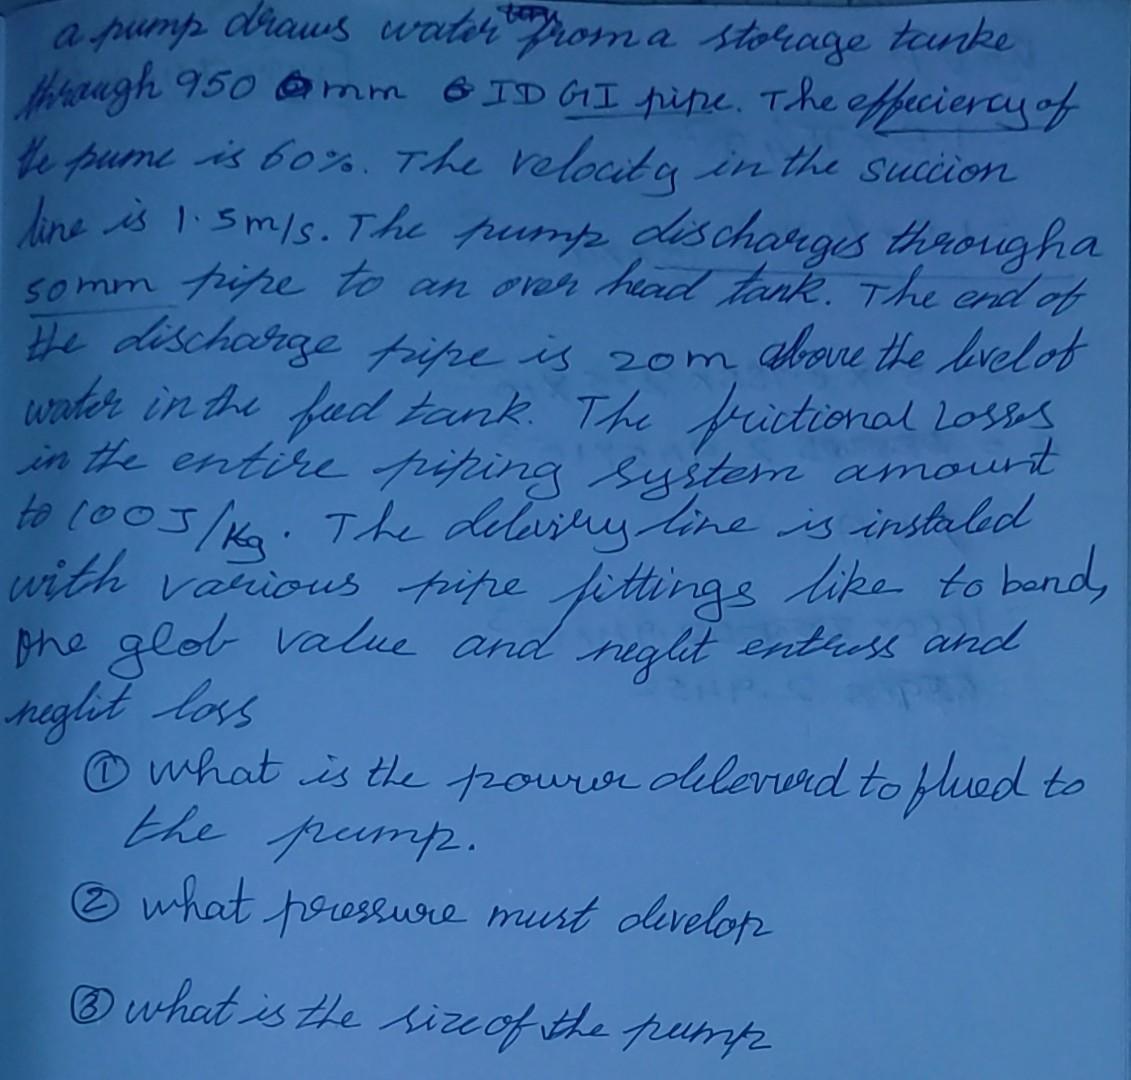 a pump draws water from a storage tanke
through 950 mm ID GI pipe. The effeciercy of
the pume is 60%. The velocity in the succion
line is 1.5m/s. The pump discharges through a
50mm pipe to an over head tank. The end of
the discharge pipe is 20m above the level of
water in the feed tank. The frictional Losses
in the entire piping system amount
to 100J/Kg. The delaviry line is instaled
with various pipe fittings like to bend,
one glob value and neglet entress and
neglit loss
① what is the powur delevered to flued to
the pump.
② what pressure must develop
③ what is the size of the pump